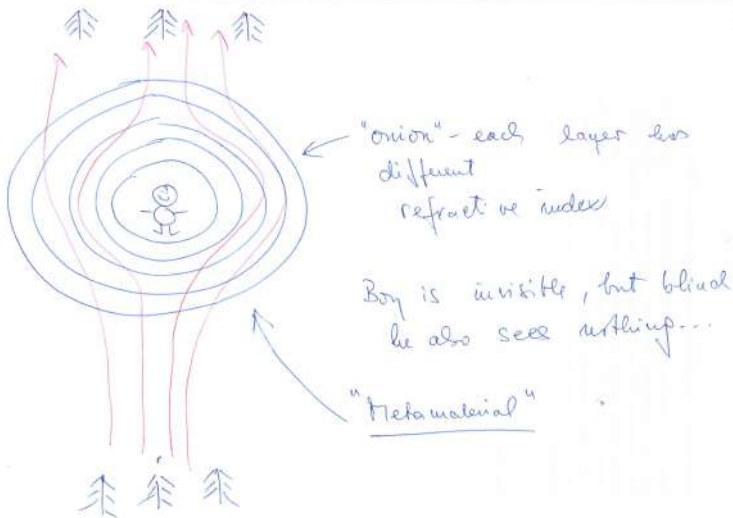 "onion" - each layer has
different
refractive index
Boy is invisible, but blind
he also sees nothing...
"Metamaterial"